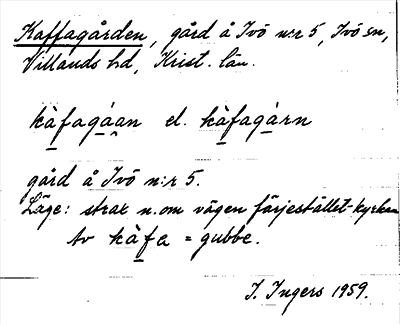 Kaffagården, gård å Ivö n:r 5, Ivö sn,
Villands hd, Krist. län.
kàfagáan el. kàfagárn
gård å Ivö n:r 5.
Läge: strax n. om vägen färjestället-kyrkan
Av kàfa = gubbe.
I. Ingers 1959.